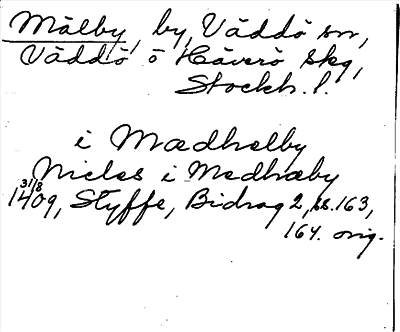 Mälby, by, Väddö sn,
Väddö o Häverö skg,
Stockh. l.
i Mædhelby
Niclas i Medhæby
31/8 1409, Styffe, Bidrag 2, ss. 163,
164. orig.